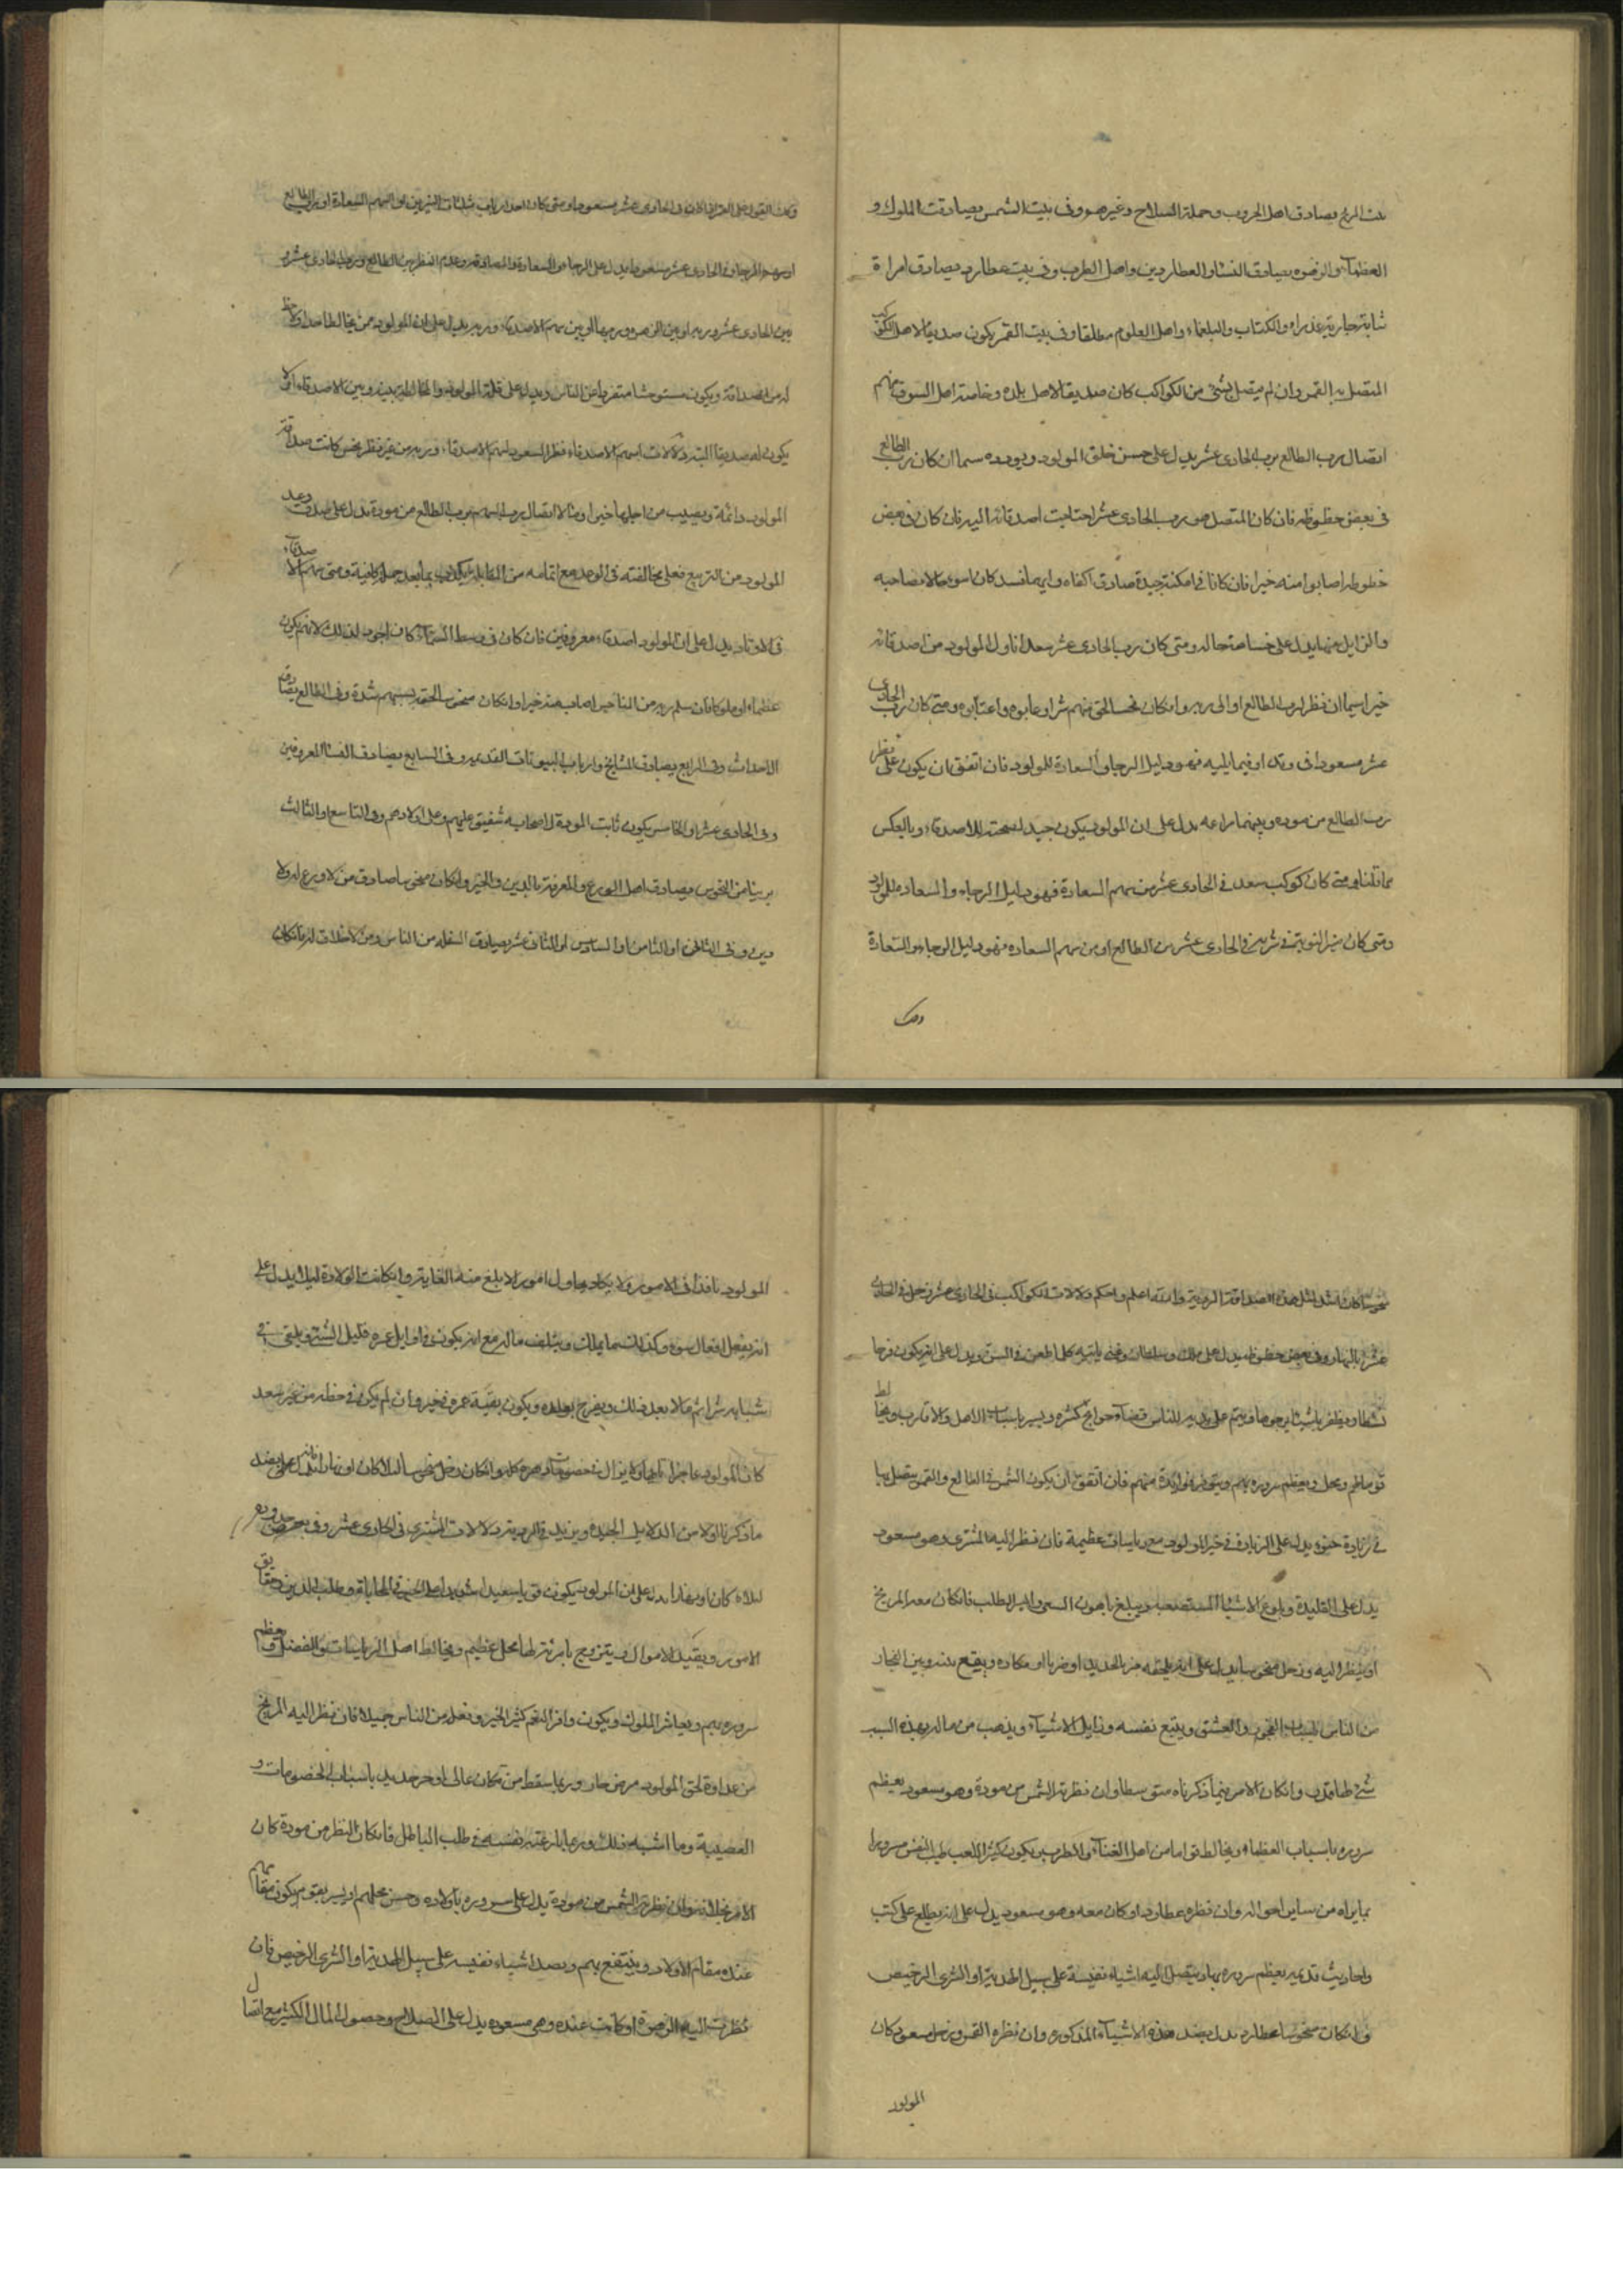 بيت المريخ يصادق اهل الحروب وحملة السلاح وغيرهم وفى بيت الشمس يصادقت الملوك و
العظمآء والزهره يصادق النسا والعطاردين واهل الطرب وفى بيت عطارد يصادق امراة
شابة جارية عذراء والكتاب والبلغاء واهل العلوم مطلقا وفى بيت القمر يكون صديقا لاهل الكوكب
المتصل به القمر وان لم يتصل بشئ من الكواكب كان صديقا لاهل بلده وخاصة اهل السوق منهم
اتصال برب الطالع برب الحادى عشر يدل على حسن خلق المولود وتودده سيما ان كان رب الطالع
فى بعض حظوظه فان كان المتصل هو رب الحادى عشر احتاجت اصدقائه اليه فان كان فى بعض
حظوظه اصابوا منه خيرا فان كانا فى امكنة جيدة صادق اكفاه وايهما فسد كان اسوء حالا صاحبه
والزايل منهما يدل على خساسة حاله ومتى كان رب الحادى عشر سعدا ناول المولود من اصدقائه
خيرا سيما ان نظر لرب الطالع او الى ربه وان كان نحسا لحق منهم شرا وعابوه واعتابوه ومتى كان رب الحادى
عشر مسعودا فى وتد او فيما يليه فهو دليل الرجاء والسعادة للمولود فان اتفق ان يكون على نظر
رب الطالع من موده وبينهما مراعه يدل على ان المولود يكون جيد الصحبة للاصدقاء وبالعكس
مما قلنا ومتى كان كوكب سعد فى الحادى عشر من سهم السعادة فهو دليل الرجاء والسعاده للمولود
ومتى كان نير النوبة فى شرفه فى الحادى عشر من الطالع او من سهم السعاده فهو دليل الرجاء والسعادة
ومتى كان احد ارباب مثلثات النيرين او سهم السعادة او رب الطالع
او سهم الرجاء فى الحادى عشر مسعودا يدل على الرجاء والسعادة والصداقة وعدم النظر بين الطالع ورب الحادى عشر
بين الحادى عشر وربه او بين الزهره وربها الى بين سهم الاصدقاء وربه يدل على ان المولود ممن يخالط احدا ولا حظ
له من الصداقة ويكون مستوحشا متفردا عن الناس ويدل على قلة المولود والمخالطة بينه وبين الاصدقاء او لا
يكون له صديقا البتة دلالات سهم الاصدقاء نظر السعود لسهم الاصدقاء وربه من غير نظر نحس كانت صداقة
المولود دائمة ويصيب من اجلها خيرا ومالا اتصال رب السهم برب الطالع من مودة يدل على صدق وعد
المولود من التربيع فعلى مخالفته فى الوعد مع اتمامه من المقابلة يكذب بما يعد جملة كافية ومتى سهم الاصدقاء
فى الاوتاد يدل على ان المولود اصدقاء معروفين فان كان فى وسط السماء كان اجود لذلك لانهم يكون
عظماء او ملوكا فان سلم ربه من المناحس اصاب منه خيرا وان كان منحوسا لحقه بسببهم شدة وفى الطالع يصادق
الاحداث وفى الرابع يصادق المشايخ وارباب البيوتات القديمه وفى السابع يصادق النسا المعروفين
وفى الحادى عشر او الخامس يكون ثابت المودة لاصحابه شفيق عليهم وعلى اولادهم وفى التاسع او الثالث
بريئا من النحوس يصادق اهل الورع والمعرفة بالدين والخير وان كان منحوسا صادق من لا ورع له ولا
دين وفى الثامن او السادس او الثانى عشر يصادق السفله من الناس ومن لا اخلاق له فان كان
ومتى
منحوسا كان اشد لمثل هذه الصداقة الرديه والله اعلم واحكم دلالات الكواكب فى الحادى عشر زحل فى الحادى
عشر بالنهار وفى بعض حظوظه يدل على ملك وسلطان وغنى ياتيه كلما طعن فى السن ويدل على انه يكون فرحا
نشطا ويظفر باشيئا يرجوها ويتم على يديه للناس قضآء حوايج كثيره ويسر باسباب الاهل والاقارب ويخالط
قوما لهم محل ويعظم سروره بهم ويتوفر فوايدة منهم فان اتفق ان يكون الشمس فى الطالع والقمر يتصل بها
فى زيادة ضوءه يدل على الزيادة فى خير المولود مع رياسات عظيمة فان نظر اليه المشترى وهو مسعود
يدل على القليدة وبلوغ الاشيا المستصعبة ويبلغ باهون السعى وايسر الطلب فان كان معه المريخ
او ينظر اليه وزحل منحوسا يدل على انه يلحقه ضر بالحديد او ضربا او مكاره ويقع بينه وبين التجار
من الناس لسباب الفجور والعشق ويتبع نفسه رذايل الاشيآء ويذهب من ماله بهذه السبب
شئ له قدر وان كان الامر فيما ذكرناه متوسطا وان نظرته الشمس من مودة وهو مسعود يعظم
سروره باسباب العظماء ويخالط قواما من اهل الغنآء والطرب ويكون كثير اللعب طيب النفس مسرورا
بما يراه من ساير احواله وان نظره عطارد او كان معه وهو مسعود يدل على انه يطلع على كتب
واحاديث قديمه يعظم سروره بها ويتصل اليه اشياء نفيسة على سبيل الهدية او الشرى الرخيص
وان كان منحوسا عطارد يدل بضد هذه الاشيآء المذكوره وان نظره القمر وزحل مسعود كان
المولود نافذا فى الامور ولا يكاد يحاول امورا لا بلغ منه الغاية وان كانت الولادة ليلا يدل على
انه يفعل افعال سوء وكذلك مما يملك ويتلف ماله مع انه يكون فى اوايل عمره قليل الشر ويلقى فى
شبابه شرا ثم مالا بعد ذلك ويفرح بولده ويكون بقية عمره فى خير وان لم يكون فى حظه من غير سعد
كان المولود عاجزا تايها ولا يزال فى خصومات وهرج وان كان زحل منحوسا ليلا كان او نهارا يدل على بضد
ما ذكرنا اولا من الدلايل الجيدة ويزيد فى الرديه دلالات المشترى فى الحادى عشر وفى بعض حدوده
ليلا كان او نهارا يدل على ان المولود يكون قويا سعيدا شديدا على الخير فى المحاباة وطلب الدين وحقايق
الامور ويفيد الاموال ويتزوج بامرئة لها محل عظيم ويخالط اهل الرياسات والفضل ويعظم
سروره بهم ويعاشر الملوك ويكون وافر النعم كثير الخير وفعله من الناس جميلا فان نظر اليه المريخ
من عداوة لحق المولود مرض حار وربما سقط من مكان عالى او جرح حديد باسباب الخصومات و
العصبية وما اشبه ذلك وربما نازعته نفسه فى طلب الباطل فان كان النظر من مودة كان
الامر بخلافه وان نظرته الشمس من مودة يدل على سروره باولاده وحسن محلهم او يسر بقوم يكون مقامهم
عنده مقام الاولاد وينتفع بهم ويصد اشياء نفيسه على سبيل الهدية او الشرى الرخيص فان
نظرت اليه الزهرة او كانت عنده وهى مسعوده يدل على الصلاح وحصول المال الكثير مع اتصال
المولود